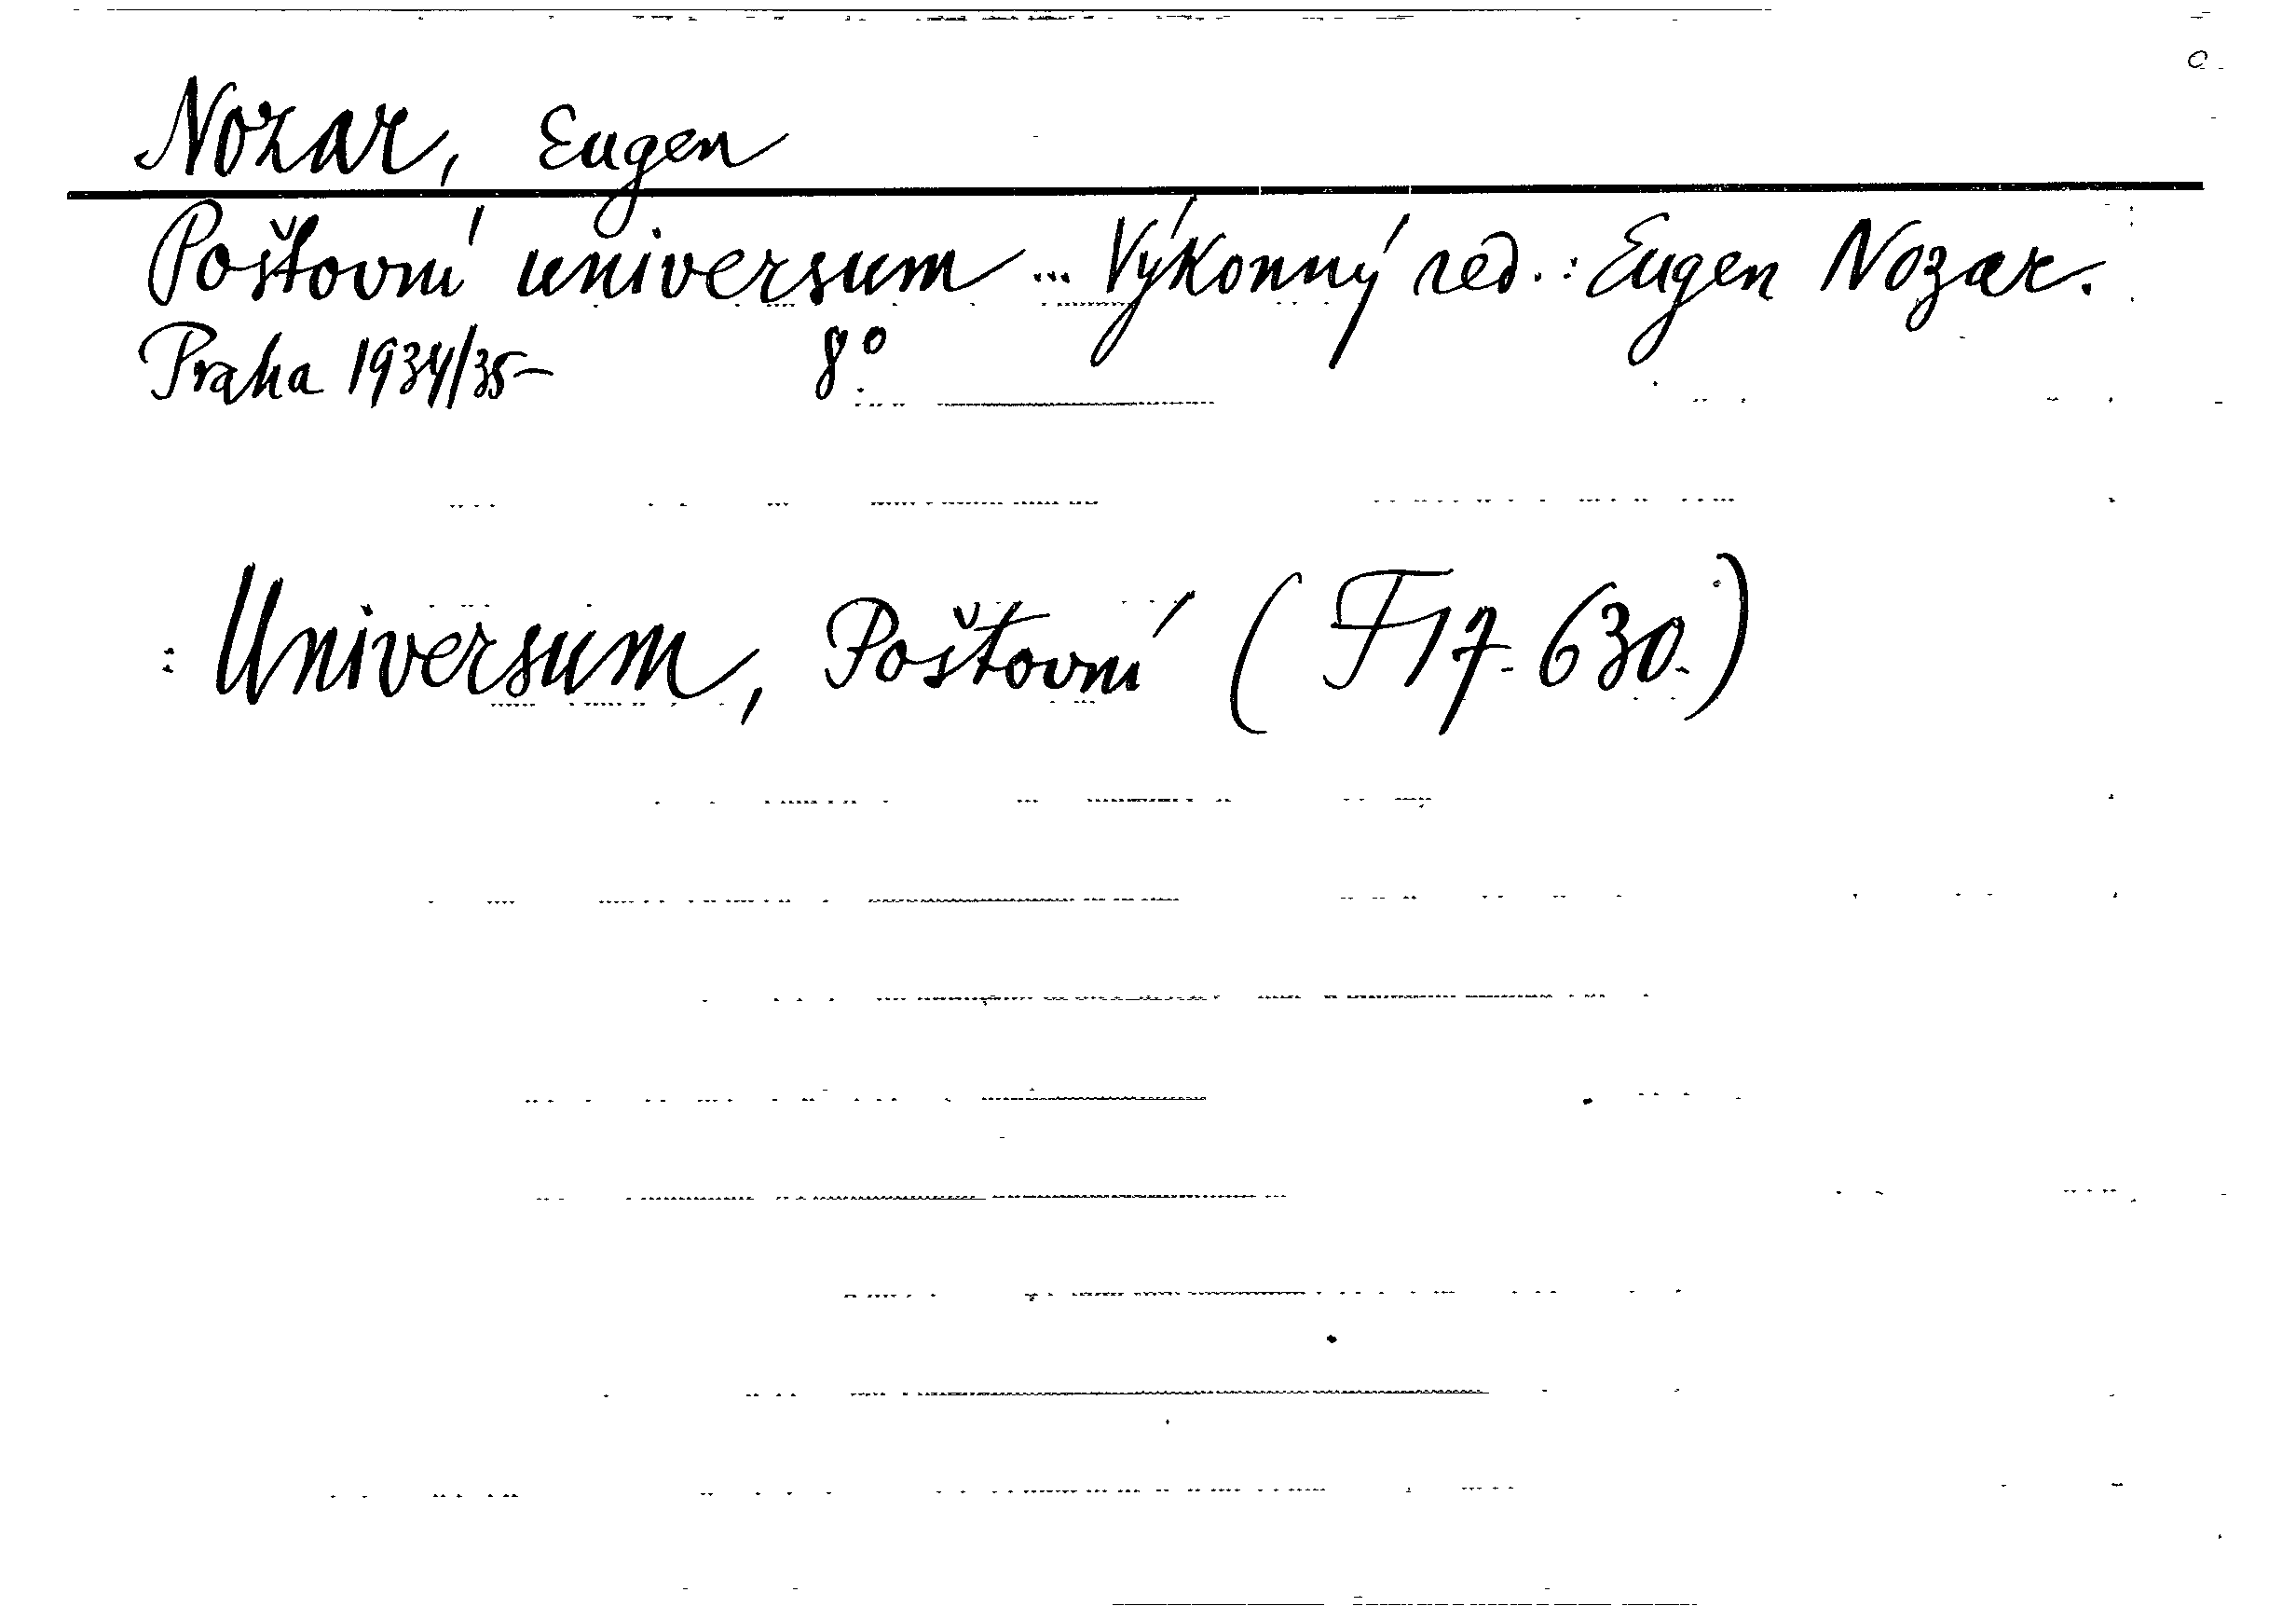 Nozar, Eugen
Poštovní universum ... Výkonný red.: Eugen Nozar.
Praha 1934/35- 8°
: Universum, Poštovní (F 17.630.)